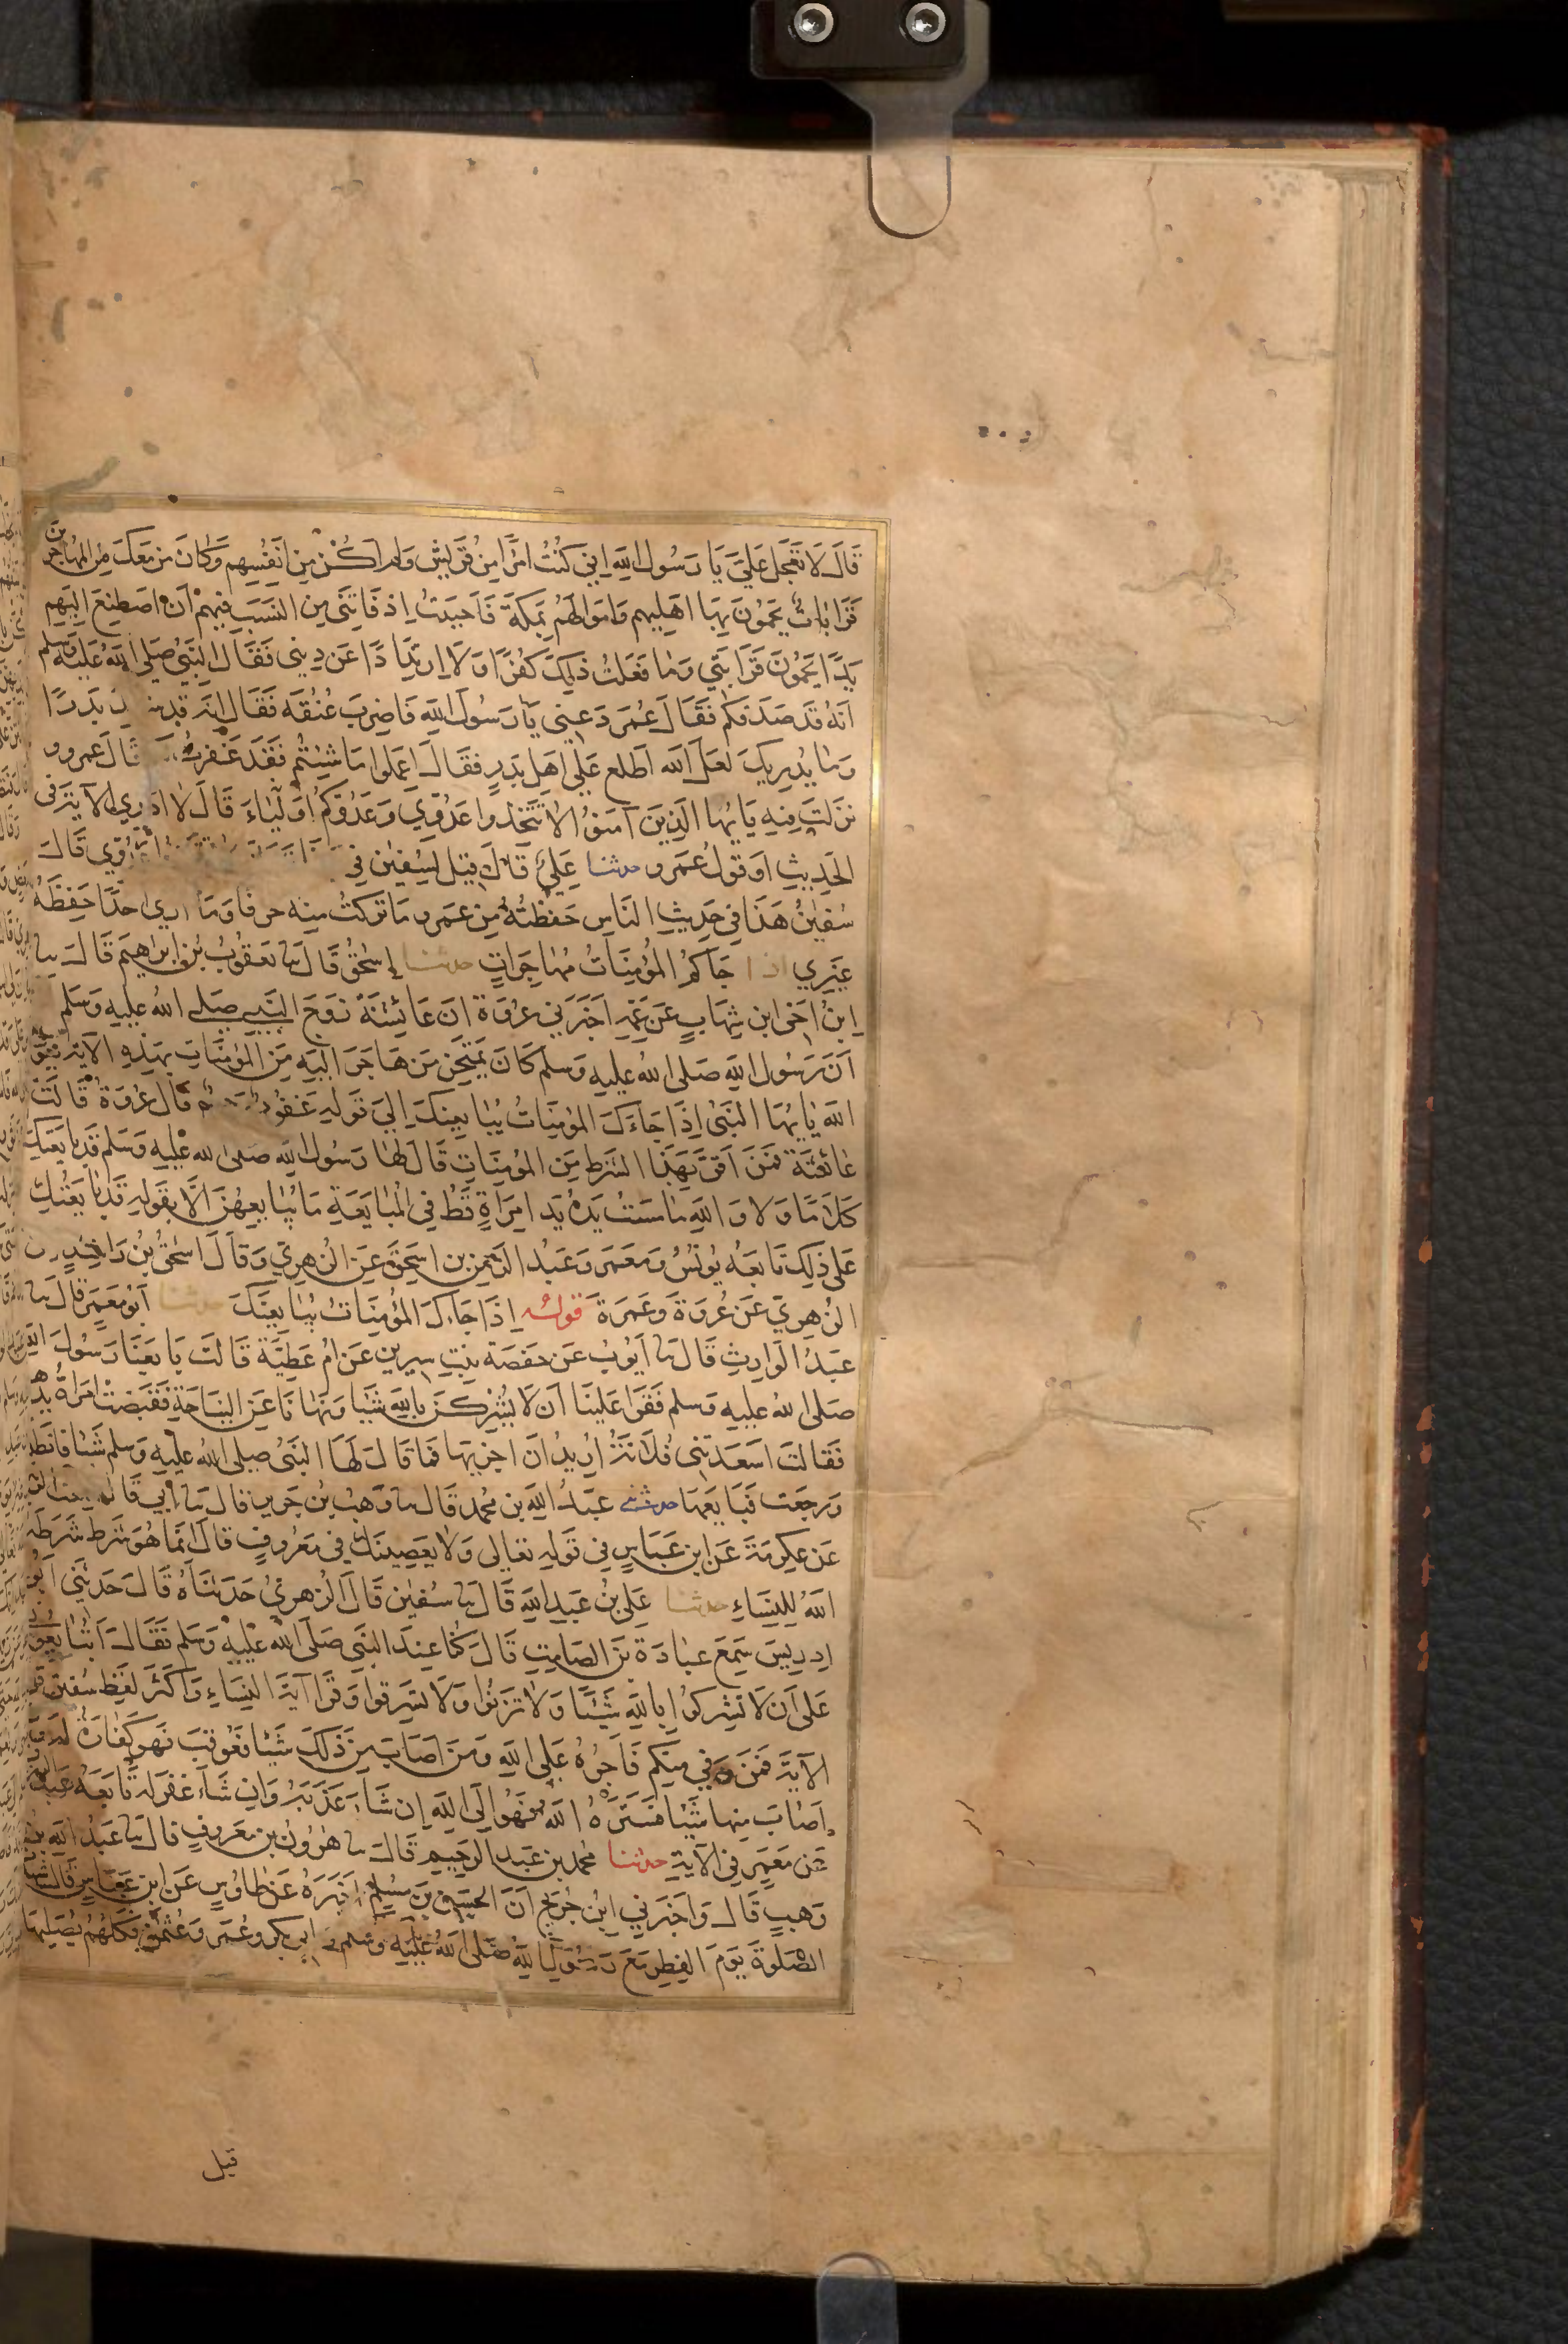 قَالَ لَا تَعْجَلْ عَلَيَّ يَا رَسُولَ اللهِ اِنِّي كُنْتُ امْرَأً مِنْ قُرَيْشٍ وَلَمْ اَكُنْ مِنْ اَنْفُسِهِمْ وَكَانَ مَنْ مَعَكَ مِنَ المُهَاجِرِينَ
قَرَابَاتٌ يَحْمُونَ بِهَا اَهْلِيهِمْ وَاَمْوَالَهُمْ بِمَكَّةَ فَاَحْبَبْتُ اِذْ فَاتَنِي مِنَ النَّسَبِ فِيهِمْ اَنْ اَصْطَنِعَ اِلَيْهِمْ
يَدًا يَحْمُونَ قَرَابَتِي وَمَا فَعَلْتُ ذَلِكَ كُفْرًا وَلَا ارْتِدَادًا عَنْ دِينِي فَقَالَ النَّبِيُّ صَلَّى اللهُ عَلَيْهِ وَسَلَّمَ
اَنَّهُ قَدْ صَدَقَكُمْ فَقَالَ عُمَرُ دَعْنِي يَا رَسُولَ اللهِ فَاَضْرِبَ عُنُقَهُ فَقَالَ اِنَّهُ قَدْ شهد بَدْرًا
وَمَا يُدْرِيكَ لَعَلَّ اللهَ اطَّلَعَ عَلَى اَهْلِ بَدْرٍ فَقَالَ اعْمَلُوا مَا شِئْتُمْ فَقَدْ غَفَرْتُ قَالَ عَمْرٌو و
نَزَلَتْ فِيهِ يَا يُّهَا الَّذِينَ آمَنُوا لَا تَتَّخِذُوا عَدُوِّي وَعَدُوَّكُمْ اَوْلِيَاءَ قَالَ لَا اَدْرِي الْآيَةَ فِي
الْحَدِيثِ اَوْ قَوْلُ عَمْرٍو حدثنا عَلِيٌّ قَالَ قِيلَ لِسُفْيٰنَ فِي عَدُوِّي قَالَ
سُفْيٰنُ هَذَا فِي حَدِيثِ النَّاسِ حَفِظْتُهُ مِنْ عَمْرٍو مَا تَرَكْتُ مِنْهُ حَرْفًا وَمَا اُرَى اَحَدًا حَفِظَهُ
غَيْرِي اذا جَاكُمُ المُؤْمِنَاتُ مُهَاجِرَاتٍ حدثنا اِسْحٰقُ قَالَ ثنا يَعْقُوبُ بْنُ اِبْرَاهِيمَ قَالَ ثنا
اِبْنُ اَخِي ابْنِ شِهَابٍ عَنْ عَمِّهِ اَخْبَرَنِي عُرْوَةُ اَنَّ عَائِشَةَ زَوْجَ النَّبِيِّ صَلَّى اللهُ عَلَيْهِ وَسَلَّمَ
اَنَّ رَسُولَ اللهِ صَلَّى اللهُ عَلَيْهِ وَسَلَّمَ كَانَ يَمْتَحِنُ مَنْ هَاجَرَ اِلَيْهِ مِنَ الْمُؤْمِنَاتِ بِهَذِهِ الْآيَةِ بِقَوْلِ
اللهِ يَا يُّهَا النَّبِيُّ اِذَا جَاءَكَ المُؤْمِنَاتُ يُبَايِعْنَكَ اِلَى قَوْلِهِ غَفُورٌ رَحِيمٌ قَالَ عُرْوَةُ قَالَتْ
عَائِشَةُ فَمَنْ اَقَرَّ بِهَذَا الشَّرْطِ مِنَ المُؤْمِنَاتِ قَالَ لَهَا رَسُولُ اللهِ صَلَّى اللهُ عَلَيْهِ وَسَلَّمَ قَدْ بَايَعْتُكِ
كَلَامًا وَلَا وَاللهِ مَا مَسَّتْ يَدُهُ يَدَ امْرَاَةٍ قَطُّ فِي الْمُبَايَعَةِ مَا يُبَايِعُهُنَّ اِلَّا بِقَوْلِهِ قَدْ بَايَعْتُكِ
عَلَى ذَلِكَ تَابَعَهُ يُونُسُ وَمَعْمَرٌ وَعَبْدُ الرَّحْمٰنِ بْنُ اِسْحٰقَ عَنِ الزُّهْرِيِّ وَقَالَ اِسْحٰقُ بْنُ رَاشِدٍ عن
الزُّهْرِيِّ عَنْ عُرْوَةَ وَعَمْرَةَ قوله اِذَا جَاءَكَ المُؤْمِنَاتُ يُبَايِعْنَكَ حدثنا اَبُو مَعْمَرٍ قَالَ ثنا
عَبْدُ الْوَارِثِ قَالَ ثنا اَيُّوبُ عَنْ حَفْصَةَ بِنْتِ سِيرِينَ عَنْ اُمِّ عَطِيَّةَ قَالَتْ بَايَعْنَا رَسُولَ اللهِ
صَلَّى اللهُ عَلَيْهِ وَسَلَّمَ فَقَرَاَ عَلَيْنَا اَنْ لَا يُشْرِكْنَ بِاللهِ شَيْئًا وَنَهَانَا عَنِ النِّيَاحَةِ فَقَبَضَتِ امْرَاَةٌ يَدَهَا
فَقَالَتْ اَسْعَدَتْنِي فُلَانَةُ اُرِيدُ اَنْ اَجْزِيَهَا فَمَا قَالَ لَهَا النَّبِيُّ صَلَّى اللهُ عَلَيْهِ وَسَلَّمَ شَيْئًا فَانْطَلَقَتْ
وَرَجَعَتْ فَبَايَعَهَا حدثنى عَبْدُ اللهِ بْنُ مُحَمَّدٍ قَالَ ثنا وَهْبُ بْنُ جَرِيرٍ قَالَ ثنا اَبِي قَالَ سمعت الزبير
عَنْ عِكْرِمَةَ عَنِ ابْنِ عَبَّاسٍ فِي قَوْلِهِ تَعَالَى وَلَا يَعْصِينَكَ فِي مَعْرُوفٍ قَالَ اِنَّمَا هُوَ شَرْطٌ شَرَطَهُ
اللهُ لِلنِّسَاءِ حدثنا عَلِيُّ بْنُ عَبْدِ اللهِ قَالَ ثنا سُفْيٰنُ قَالَ الزُّهْرِيُّ حَدَّثَنَاهُ قَالَ حَدَّثَنِي اَبُو
اِدْرِيسَ سَمِعَ عُبَادَةَ بْنَ الصَّامِتِ قَالَ كُنَّا عِنْدَ النَّبِيِّ صَلَّى اللهُ عَلَيْهِ وَسَلَّمَ فَقَالَ اَتُبَايِعُونِي
عَلَى اَنْ لَا تُشْرِكُوا بِاللهِ شَيْئًا وَلَا تَزْنُوا وَلَا تَسْرِقُوا وَقَرَاَ آيَةَ النِّسَاءِ وَاَكْثَرُ لَفْظِ سُفْيٰنَ قَرَاَ
الْآيَةَ فَمَنْ وَفِي مِنْكُمْ فَاَجْرُهُ عَلَى اللهِ وَمَنْ اَصَابَ مِنْ ذَلِكَ شَيْئًا فَعُوقِبَ فَهُوَ كَفَّارَةٌ لَهُ وَمَنْ
اَصَابَ مِنْهَا شَيْئًا فَسَتَرَهُ اللهُ فَهُوَ اِلَى اللهِ اِنْ شَاءَ عَذَّبَهُ وَاِنْ شَاءَ غَفَرَ لَهُ تَابَعَهُ عَبْدُ الرَّزَّاقِ
عَنْ مَعْمَرٍ فِي الْآيَةِ حدثنا مُحَمَّدُ بْنُ عَبْدِ الرَّحِيمِ قَالَ ثنا هٰرُونُ بْنُ مَعْرُوفٍ قَالَ ثنا عَبْدُ اللهِ بْنُ
وَهْبٍ قَالَ وَاَخْبَرَنِي ابْنُ جُرَيْجٍ اَنَّ الْحَسَنَ بْنَ مُسْلِمٍ اَخْبَرَهُ عَنْ طَاوُسٍ عَنِ ابْنِ عَبَّاسٍ قَالَ شهدت
الصَّلٰوةَ يَوْمَ الْفِطْرِ مَعَ رَسُولِ اللهِ صَلَّى اللهُ عَلَيْهِ وَسَلَّمَ وَابي بكر وعُمَرَ وَعُثْمٰنَ فَكُلُّهُمْ يُصَلِّيهَا
قبل